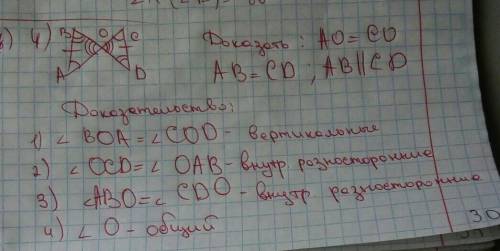 4) B O C Доказать: AO = CO
A D AB = CD, AB || CD
Доказательство:
1) ∠ BOA = ∠ COD - вертикальные
2) ∠ OCD = ∠ OAB - внутр. разносторонние
3) ∠ABO = ∠ CDO - внутр. разносторонние
4) ∠ O - общий
30